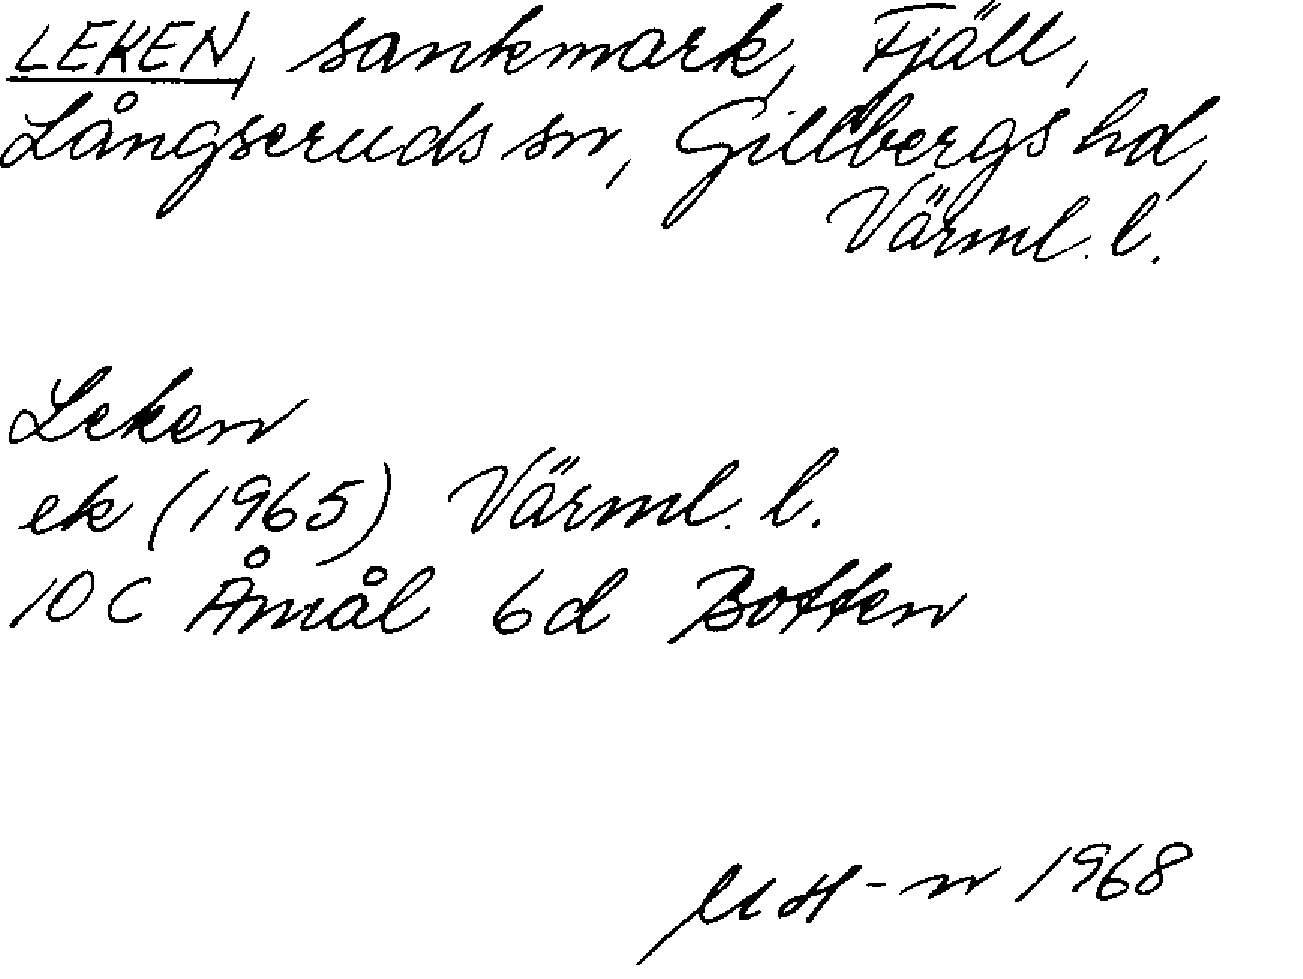 LEKEN, sankmark, Fjäll,
Långseruds sn, Gillbergs hd,
Värml. l.
Leken
ek (1965) Värml. l.
10 C Åmål 6d Botten
MH-n 1968